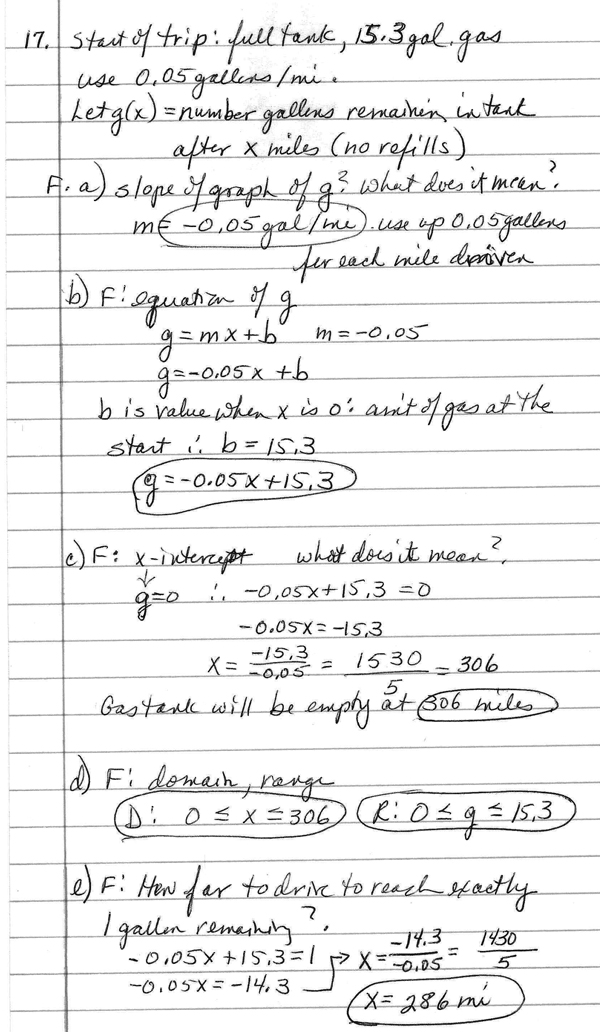 17. Start of trip: full tank, 15.3 gal. gas
use 0.05 gallons/mi.
Let g(x) = number gallons remaining in tank
after x miles (no refills)
F. a) slope of graph of g? what does it mean?
m = -0.05 gal/mi. use up 0.05 gallons
for each mile driven
b) F: equation of g
g = mx+b m = -0.05
g = -0.05x + b
b is value when x is 0: am't of gas at the
start ∴ b = 15.3
g = -0.05x+15.3
c) F: x-intercept what does it mean?
↓
g=0 ∴ -0.05x+15.3 = 0
-0.05x = -15.3
x = -15.3/-0.05 = 1530/5 = 306
Gas tank will be empty at 306 miles
d) F: domain, range
D: 0 ≤ x ≤ 306 R: 0 ≤ g ≤ 15.3
e) F: How far to drive to reach exactly
1 gallon remaining?
-0.05x+15.3=1 → x = -14.3/-0.05 = 1430/5
-0.05x = -14.3
x = 286 mi